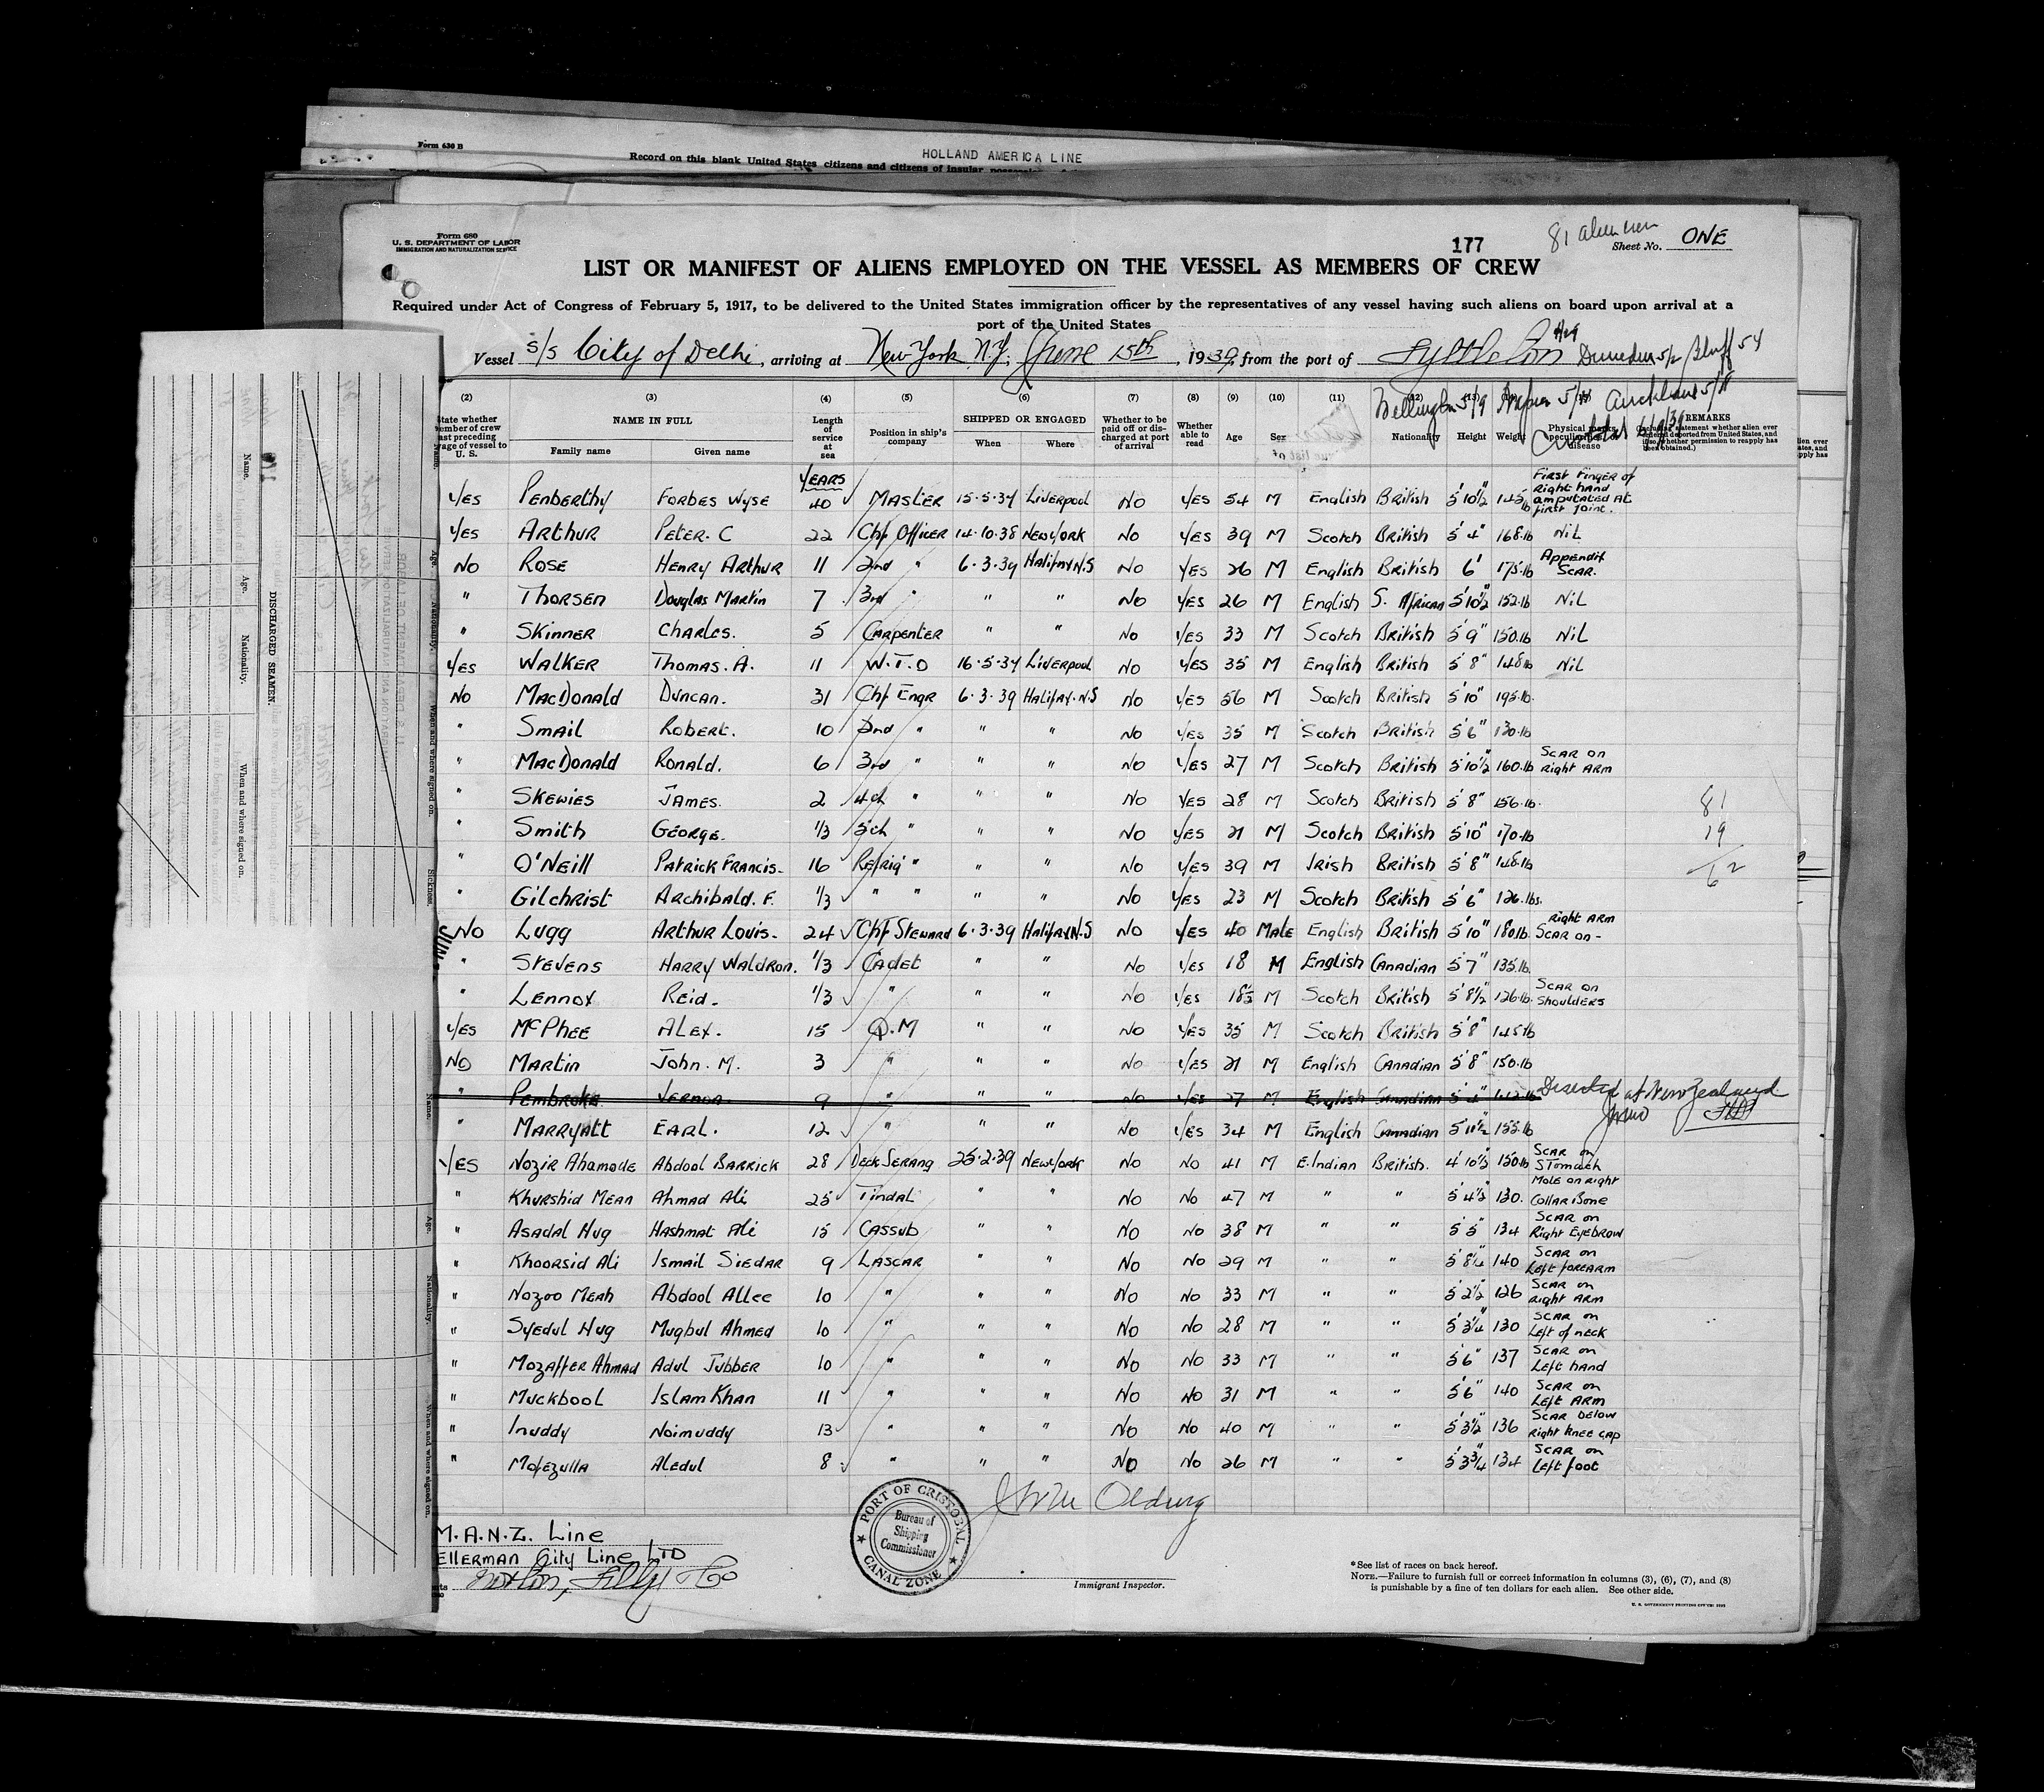 Form 630 B
HOLLAND AMERICA LINE
Record on this blank United States citizens and citizens of insular
Form 680
U. S. DEPARTMENT OF LABOR
IMMIGRATION AND NATURALIZATION SERVICE
177
81 alien men
Sheet No. ONE
LIST OR MANIFEST OF ALIENS EMPLOYED ON THE VESSEL AS MEMBERS OF CREW
Required under Act of Congress of February 5, 1917, to be delivered to the United States immigration officer by the representatives of any vessel having such aliens on board upon arrival at a
port of the United States
Vessel S/S City of Delhi, arriving at New York N.Y. June 15th, 1939, from the port of Lyttleton Dunedin 5/2 Bluff 54
Wellington 5/9 Napier 5/11 Auckland 5/18
(2) (3) (4) (5) (6) (7) (8) (9) (10) (11) (12) (13)
State whether member of crew last preceding voyage of vessel to U. S.
NAME IN FULL
Family name Given name
Length of service at sea
Position in ship's company
SHIPPED OR ENGAGED
When Where
Whether to be paid off or discharged at port of arrival
Whether able to read
Age Sex Nationality Height Weight
Physical marks, peculiarities, or disease
REMARKS
YEARS
YES Penberthy Forbes Wyse 40 Master 15.5.37 Liverpool No Yes 54 M English British 5' 10½" 145 lb First Finger of Right hand amputated at first joint.
YES Arthur Peter. C 22 Chf Officer 14.10.38 New York No Yes 39 M Scotch British 5' 4" 168.lb Nil
No Rose Henry Arthur 11 2nd " 6.3.39 Halifax N.S No Yes 26 M English British 6' 175.lb Appendix Scar.
" Thorsen Douglas Martin 7 3rd " " " No Yes 26 M English S. African 5' 10½" 152.lb Nil
" Skinner Charles. 5 Carpenter " " No Yes 33 M Scotch British 5' 9" 150.lb Nil
YES Walker Thomas. A. 11 W.T.O 16.5.37 Liverpool No Yes 35 M English British 5' 8" 148lb Nil
No MacDonald Duncan. 31 Chf Engr 6.3.39 Halifax.N.S No Yes 56 M Scotch British 5' 10" 195.lb.
" Smail Robert. 10 2nd " " " No Yes 35 M Scotch British 5' 6" 130.lb
" MacDonald Ronald. 6 3rd " " " No Yes 27 M Scotch British 5' 10½" 160.lb Scar on Right Arm
" Skewies James. 2 4th " " " No Yes 28 M Scotch British 5' 8" 156.lb.
" Smith George. 1/3 5th " " " No Yes 21 M Scotch British 5' 10" 170.lb
" O'Neill Patrick Francis. 16 Refrig " " " No Yes 39 M Irish British 5' 8" 148.lb
" Gilchrist Archibald. F. 1/3 " " " " No Yes 23 M Scotch British 5' 6" 126.lbs.
81
19
62
No Lugg Arthur Louis. 24 Chf Steward 6.3.39 Halifax N.S No Yes 40 Male English British 5' 10" 180lb. Right Arm Scar on -
" Stevens Harry Waldron. 1/3 Cadet " " No Yes 18 M English Canadian 5' 7" 135.lb.
" Lennox Reid. 1/3 " " " No Yes 18½ M Scotch British 5' 8½" 126.lb. Scar on Shoulders
YES McPhee Alex. 15 Q.M " " No Yes 35 M Scotch British 5' 8" 145.lb
No Martin John. M. 3 " " " No Yes 21 M English Canadian 5' 8" 150.lb
" Pembroke Vernon 9 " " " No Yes 27 M English Canadian 5' 4" 142.lb Deserted at New Zealand
" Marryatt Earl. 12 " " " No Yes 34 M English Canadian 5' 11½" 155.lb
YES Nozir Ahamode Abdool Barrick 28 Deck Serang 25.2.39 New York No No 41 M E.Indian British. 4' 10½" 150.lb Scar on Stomach
" Khurshid Mean Ahmad Ali 25 Tindal " " No No 47 M " " 5' 4½" 130. Mole on Right Collar Bone
" Asadal Hug Hashmat Ali 15 Cassub " " No No 38 M " " 5' 5" 134 Scar on Right Eyebrow
" Khoorsid Ali Ismail Siedar 9 Lascar " " No No 29 M " " 5' 8¼" 140 Scar on Left forearm
" Nozoo Meah Abdool Allee 10 " " " No No 33 M " " 5' 2½" 126 Scar on Right Arm
" Syedul Hug Mugbul Ahmed 10 " " " No No 28 M " " 5' 3¼" 130 Scar on Left of neck
" Mozaffer Ahmad Adul Jubber 10 " " " No No 33 M " " 5' 6" 137 Scar on Left hand
" Muckbool Islam Khan 11 " " " No No 31 M " " 5' 6" 140 Scar on Left Arm
" Inuddy Noimuddy 13 " " " No No 40 M " " 5' 3½" 136 Scar below Right Knee Cap
" Mofezulla Aledul 8 " " " No No 26 M " " 5' 3¾" 134 Scar on Left foot
PORT OF CRISTOBAL
Bureau of Shipping Commissioner
CANAL ZONE
M.A.N.Z. Line
Ellerman City Line LTD
Norton, Lilly & Co
Immigrant Inspector.
*See list of races on back hereof.
NOTE.—Failure to furnish full or correct information in columns (3), (6), (7), and (8)
is punishable by a fine of ten dollars for each alien. See other side.
DISCHARGED SEAMEN.
Name. Age. Nationality. When and where signed on.